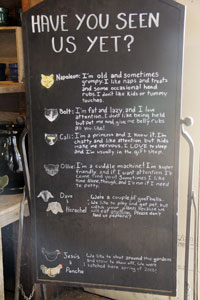 HAVE YOU SEEN
US YET?
Napoleon: I'm old and sometimes
grumpy. I like naps and treats
and some occasional head
rubs. I don't like kids or tummy
touches.
Bolt: I'm fat and lazy, and I love
attention. I don't like being held
but pet me and give me belly rubs
all you like!
Cali: I'm a princess and I know it. I'm
chatty and like attention but kids
make me nervous. I LOVE to sleep
and I'm usually in the gift shop.
Ollie: I'm a cuddle machine! I'm super
friendly, and if I want attention I'll
come find you! Sometimes I like
time alone though, and I'm not if I need
to potty.
Dave
&
Herschel
We're a couple of goofballs.
We like to play and get pet,
will eat anything. Please don't
feed us
Jesús
&
Poncho
We like to strut around the gardens
and crow to show off. We were
hatched here spring of